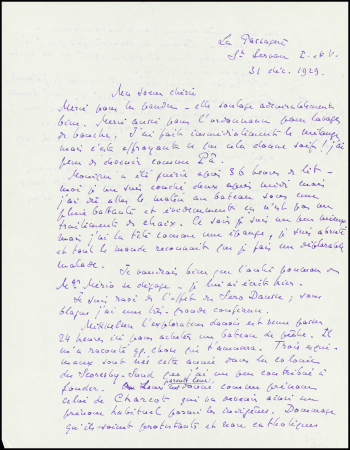 La Passagère
St Servan I. et V.
31 déc. 1929.
Ma soeur chérie
Merci pour le pardon – elle soulage admirablement
bien. Merci aussi pour l'ordonnance pour lavages
de bouche. J'ai fait immédiatement le mélange
mais c'est effrayant ce que cela donne soif ! j'ai
peur de devenir comme Pâ.
Monique a été guérie après 36 heures de lit –
moi je me suis couché deux après midi mais
j'ai dû aller le matin au bateau sous une
pluie battante et évidemment ce n'est pas un
traitement de choix. Ce soir je suis un peu mieux
mais j'ai la tête comme une éponge, je suis abruti
et tout le monde reconnait que je fais un déplorable
malade.
Je voudrais bien que l'autre poumon de
Mgr Mério se dégage – je lui ai écrit hier.
Je suis ravi de l'effet du Sero Dausse ; sans
blague j'ai une très grande confiance.
Mikkelsen l'explorateur danois est venu passer
24 heures ici pour acheter un bateau de pêche. Il
m'a raconté qq. chose qui t'amusera. Trois esqui-
maux sont nés cette année dans la colonie
du Scoresby-Sund que j'ai un peu contribué à
fonder. Leurs parents leur ont donné comme prénom
celui de Charcot qui va devenir ainsi un
prénom habituel parmi les indigènes. Dommage
qu'ils soient protestants et non catholiques